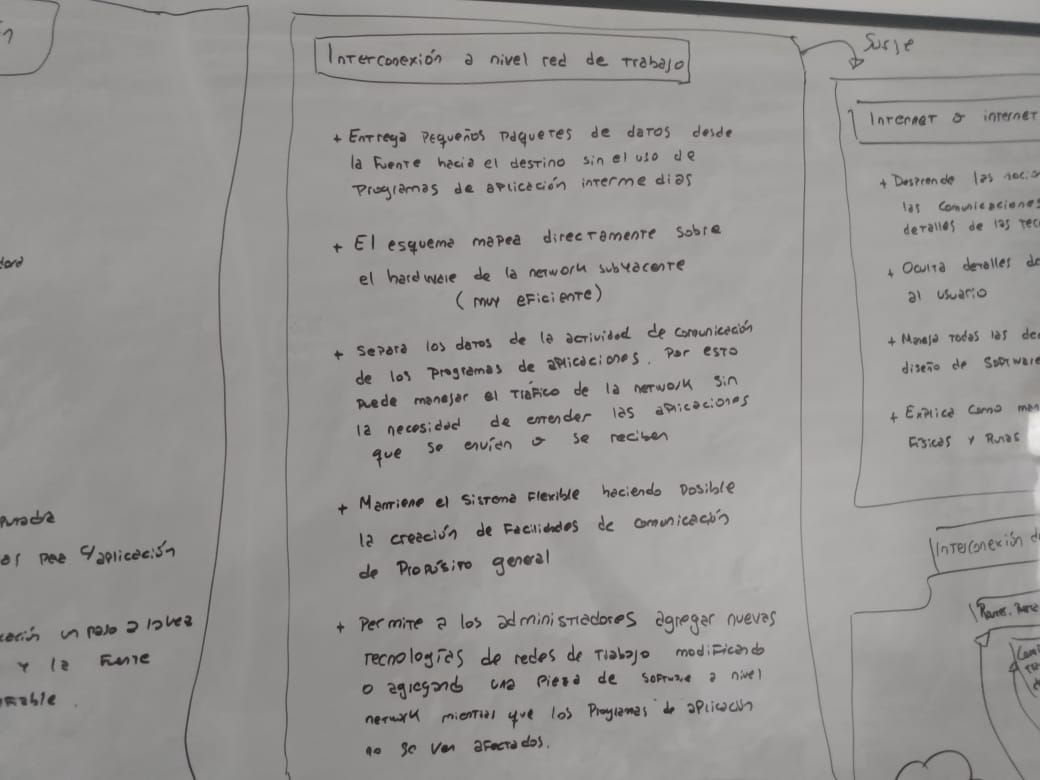 Interconexión a nivel red de trabajo
+ Entrega pequeños paquetes de datos desde
la fuente hacia el destino sin el uso de
programas de aplicación intermedias
+ El esquema mapea directamente sobre
el hardware de la network subyacente
(muy eficiente)
+ Separa los datos de la actividad de comunicación
de los programas de aplicaciones. Por esto
puede manejar el tráfico de la network sin
la necesidad de entender las aplicaciones
que se envían o se reciben
+ Mantiene el sistema flexible haciendo posible
la creación de facilidades de comunicación
de propósito general
+ Permite a los administradores agregar nuevas
tecnologías de redes de trabajo modificando
o agregando una pieza de software a nivel
network mientras que los programas de aplicación
no se ven afectados.
Surge
Internet o internet
+ Desprende las
las comunicaciones
detalles de las
+ Oculta detalles
al usuario
+ Maneja todas las
diseño de software
+ Explica como
físicas y Rutas
Interconexión
aplicación
un paso a la vez
y la fuente